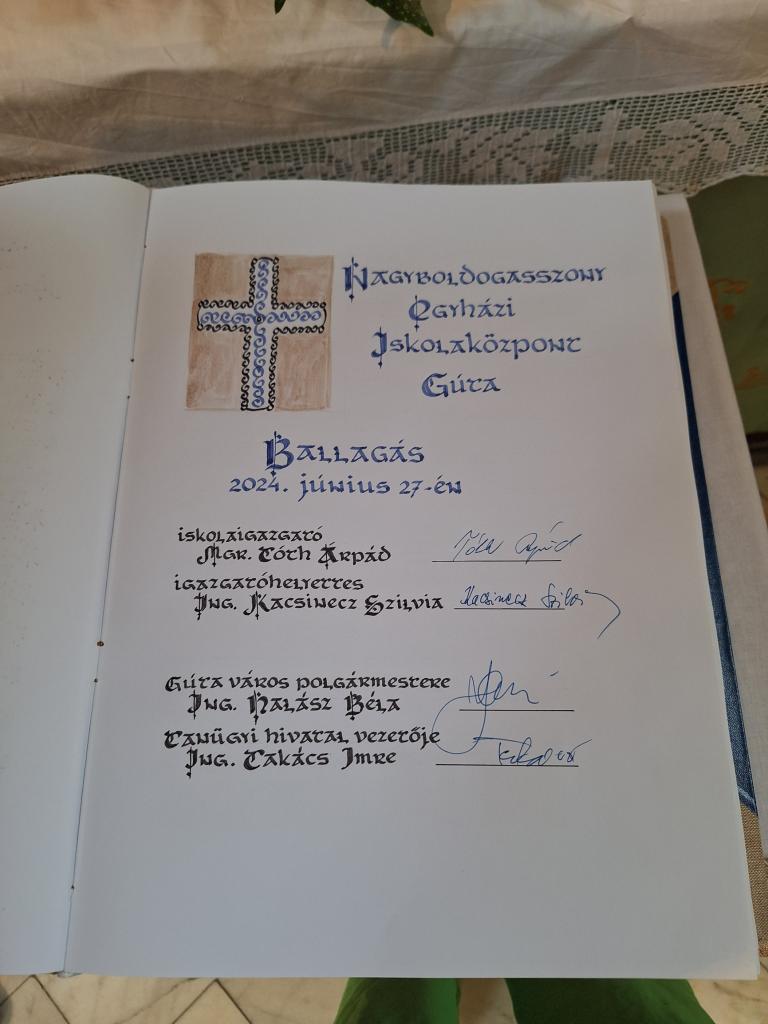 Nagyboldogasszony
Egyházi
Iskolaközpont
Gúta
Ballagás
2024. június 27-én
iskolaigazgató
Mgr. Tóth Árpád
Tóth Árpád
igazgatóhelyettes
Ing. Kacsinecz Szilvia
Kacsinecz Szilvia
Gúta város polgármestere
Ing. Halász Béla
Tanügyi hivatal vezetője
Ing. Takács Imre